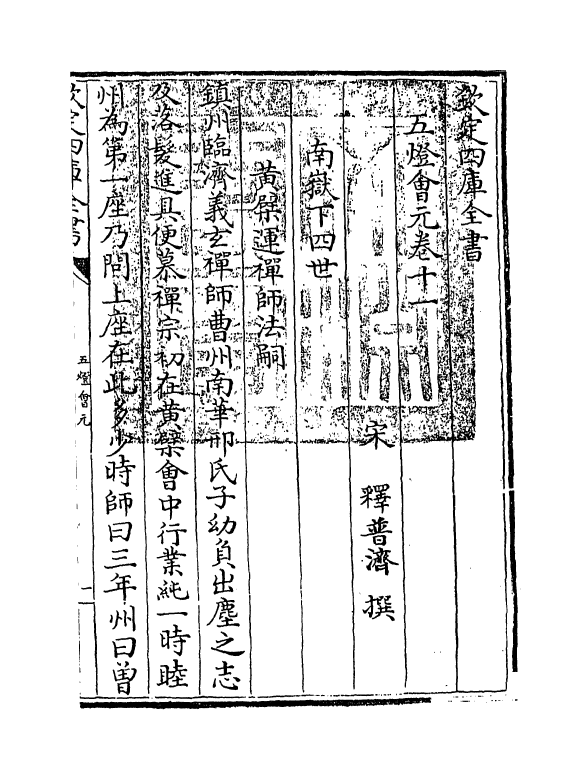 欽定四庫全書
五燈會元卷十一
宋 釋普濟 撰
南嶽下四世
黃檗運禪師法嗣
鎮州臨濟義玄禪師曹州南華邢氏子幼負出塵之志
及落髮進具便慕禪宗初在黃檗會中行業純一時睦
州為第一座乃問上座在此多少時師曰三年州曰曽
欽定四庫全書
五燈會元
一